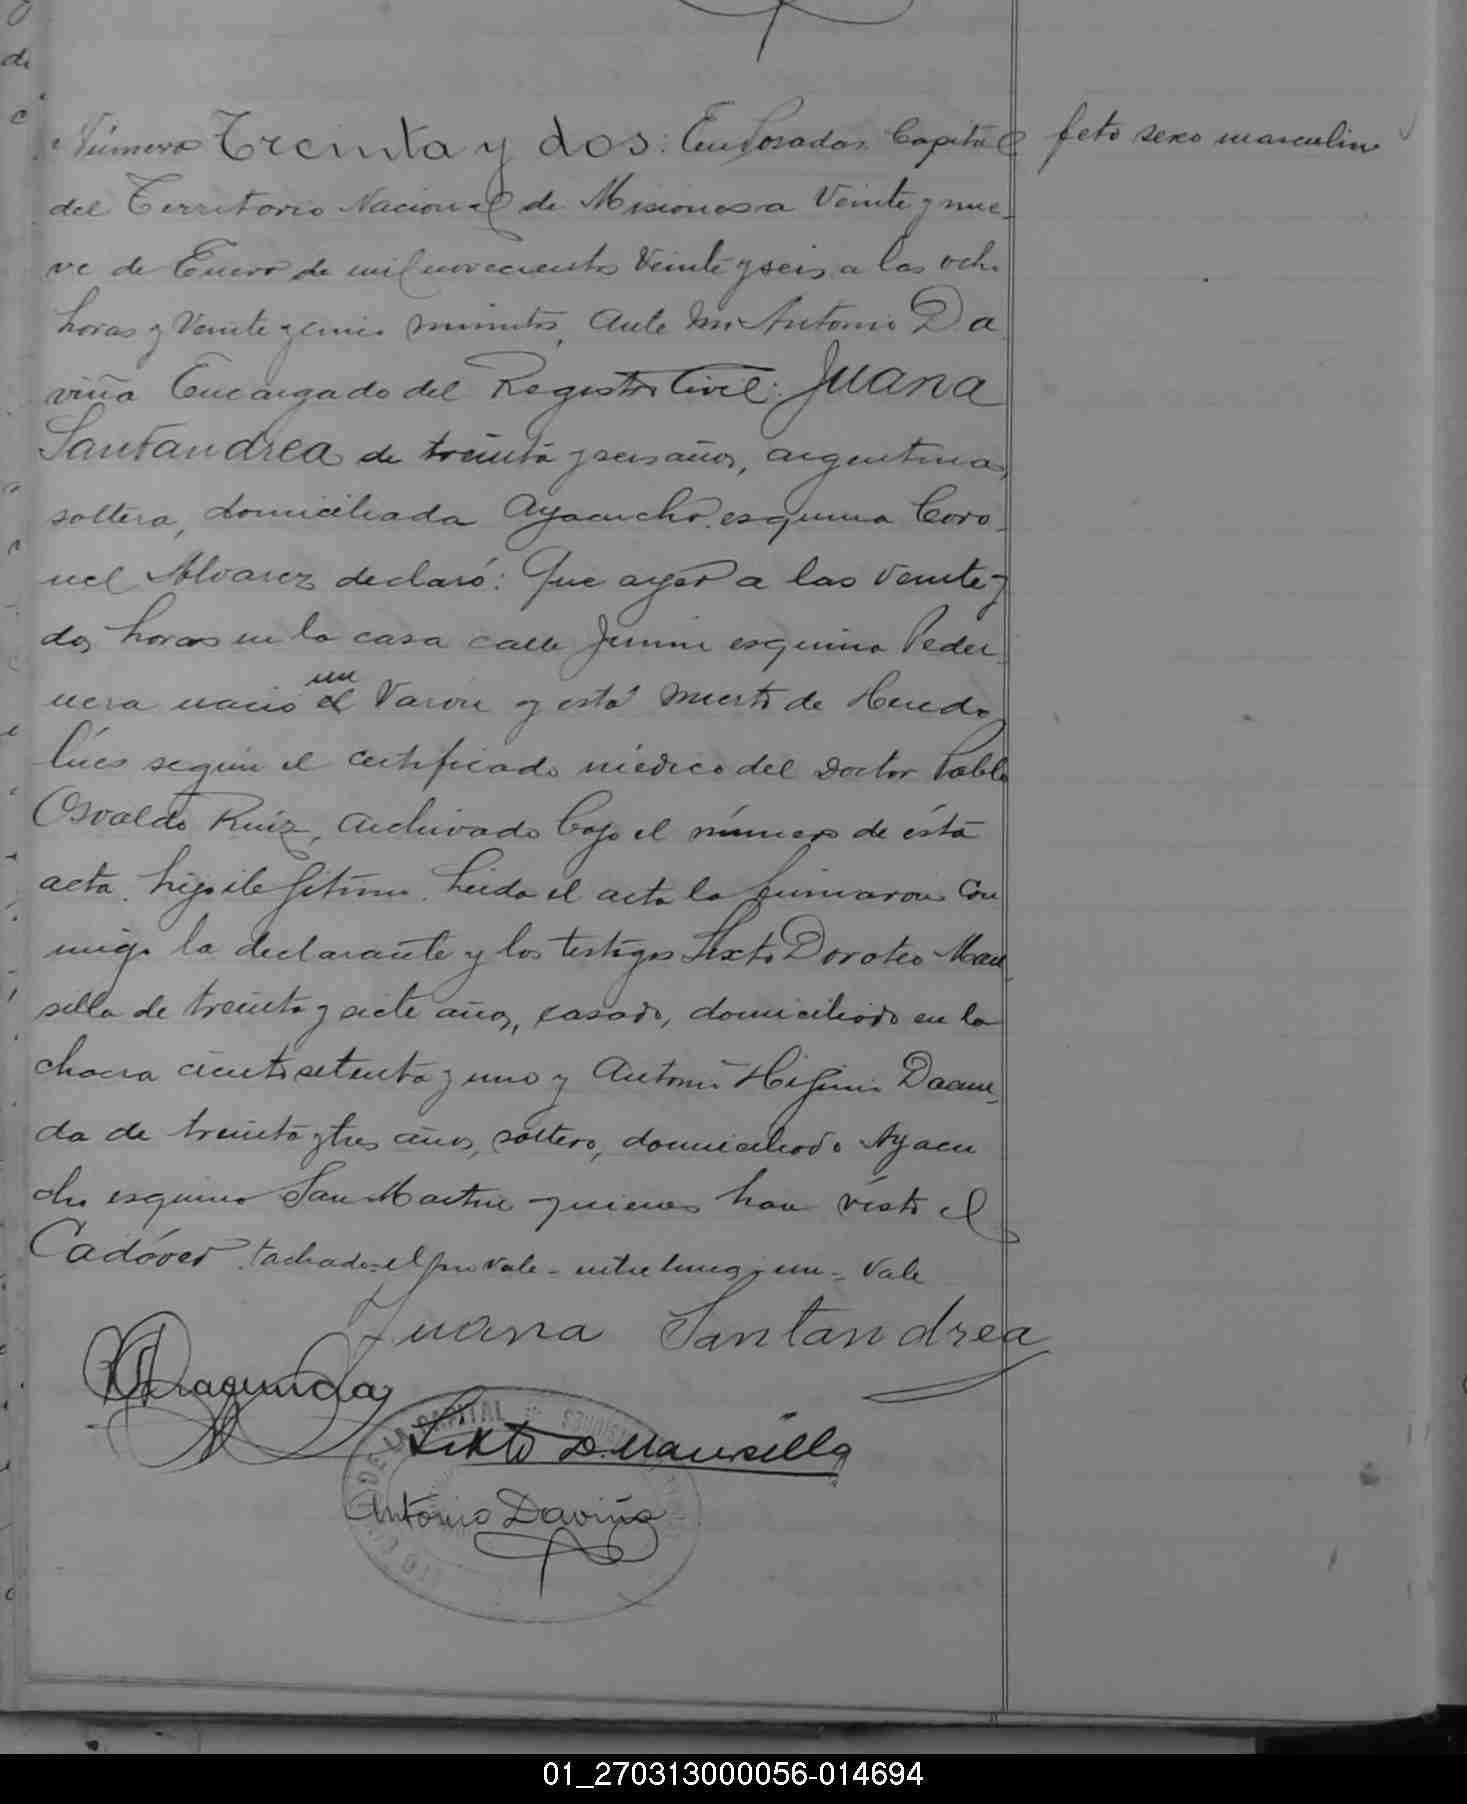 Número Treinta y dos: En Posadas Capital
feto sexo masculino
del Territorio Nacional de Misiones a Veinte y nue-
ve de Enero de mil novecientos Veinte y seis a las ocho
horas y Veinte y cinco minutos, Ante mi Antonio Da
viña Encargado del Registro Civil: Juana
Santandrea de treinta y seis años, argentina,
soltera, domiciliada Ayacucho esquina Coro-
nel Alvarez declaró: Que ayer a las veinte y
dos horas en la casa calle Junin esquina Peder-
un
nera nació el Varón y está muerto de Heredo
lúes según el certificado médico del Doctor Pablo
Osvaldo Ruíz, archivado bajo el número de ésta
acta. hijo ilegítimo. Leida el acta la firmaron con
migo la declarante y los testigos Sixto Doroteo Man-
silla de treinta y siete años, casado, domiciliado en la
chacra ciento setenta y uno y Antonio Higinio
da de treinta y tres años, soltero, domiciliado Ayacu
cho esquina San Martin quienes han visto el
Cadáver. tachado=el=no vale=entre lineas=un=Vale
Juana Santandrea
Sixto D. Mansilla
DE LA CAPITAL
Antonio Daviña
01_270313000056-014694